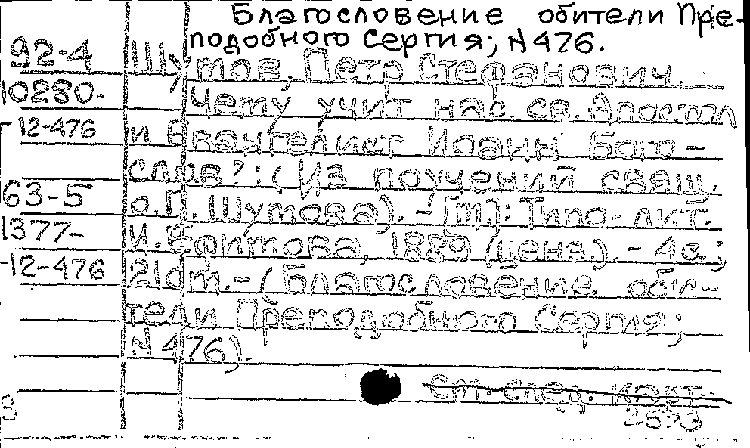 Благословение обители Пре-
подобного Сергия; N 476.
92-4 Шутов, Петр Стефанович.
10280- Чему учит нас св. Апостол
-12-476 и Евангелист Иоанн Бого-
слов?: (Из поучений свящ.
63-5 о.П. Шутова). - [М]: Типо-лит.
1377- И. Ефимова, 1889 (ценз.). - 4с.;
-12-476 21см. - (Благословение оби-
тели Преподобного Сергия;
N 476).
ст. след. карт.